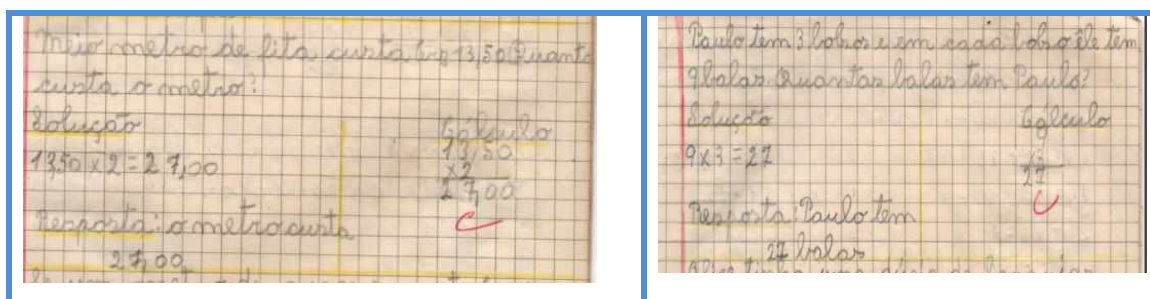 Meio metro de fita custa Cr$ 13,50 Quanto
custa o metro?
Solução
Cálculo
13,50 x 2 = 27,00
13,50
x2
27,00
Resposta: o metro custa
27,00
Paulo tem 3 bolsos e em cada bolso êle tem
9 balas Quantas balas tem Paulo?
Solução
Cálculo
9 x 3 = 27
x3
27
Resposta: Paulo tem
27 balas